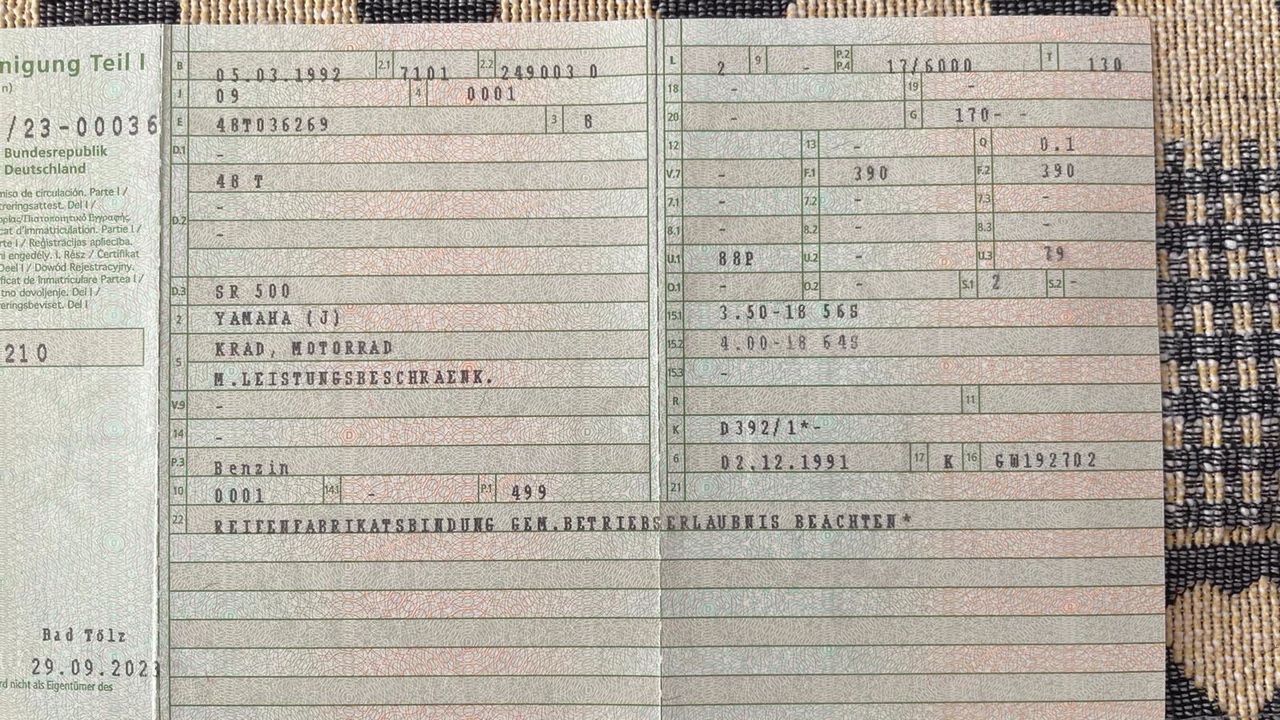 nigung Teil I
n)
/23-00036
Bundesrepublik
Deutschland
niso de circulación. Parte I /
treringsattest. Del I /
cat d'immatriculation. Partie I /
rte I / Reģistrācijas apliecība.
ni engedély. I. Rész / Certifikat
Deel I / Dowód Rejestracyjny.
ficat de Inmatriculare Partea I /
tno dovoljenje. Del I /
eringsbeviset. Del I
210
Bad Tölz
29.09.2023
rd nicht als Eigentümer des
B 05.03.1992 2.1 7101 2.2 249003 0
J 09 4 0001
E 48T036269 3 8
D.1 -
48 T
-
D.2 -
D.3 SR 500
2 YAMAHA (J)
KRAD, MOTORRAD
5
M.LEISTUNGSBESCHRAENK.
V.9 -
14 -
P.3 Benzin
10 0001 14.1 - P.1 499
L 2 9 - P.2 P.4 17/6000 T 130
18 - 19 -
20 - G 170- -
12 13 - Q 0.1
V.7 - F.1 390 F.2 390
7.1 - 7.2 - 7.3 -
8.1 - 8.2 - 8.3 -
U.1 88P U.2 - U.3 79
O.1 - O.2 - S.1 2 S.2 -
15.1 3.50-18 56S
15.2 4.00-18 64S
15.3 -
R 11
K D392/1*-
6 02.12.1991 17 K 16 GW192702
21
22 REIFENFABRIKATSBINDUNG GEM.BETRIEBSERLAUBNIS BEACHTEN*